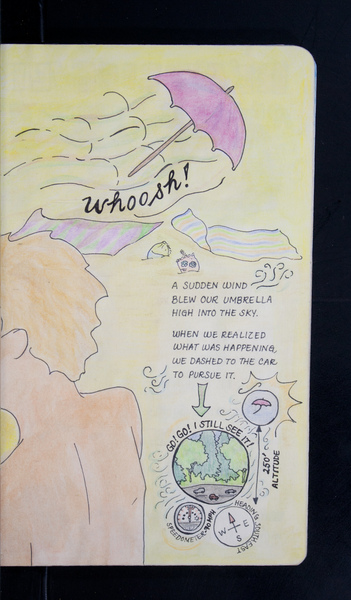 Whoosh!
A SUDDEN WIND
BLEW OUR UMBRELLA
HIGH INTO THE SKY.
WHEN WE REALIZED
WHAT WAS HAPPENING,
WE DASHED TO THE CAR
TO PURSUE IT.
GO! GO! I STILL SEE IT!
250'
ALTITUDE
HEADING SOUTHEAST
W E
S
SPEEDOMETER
MPH